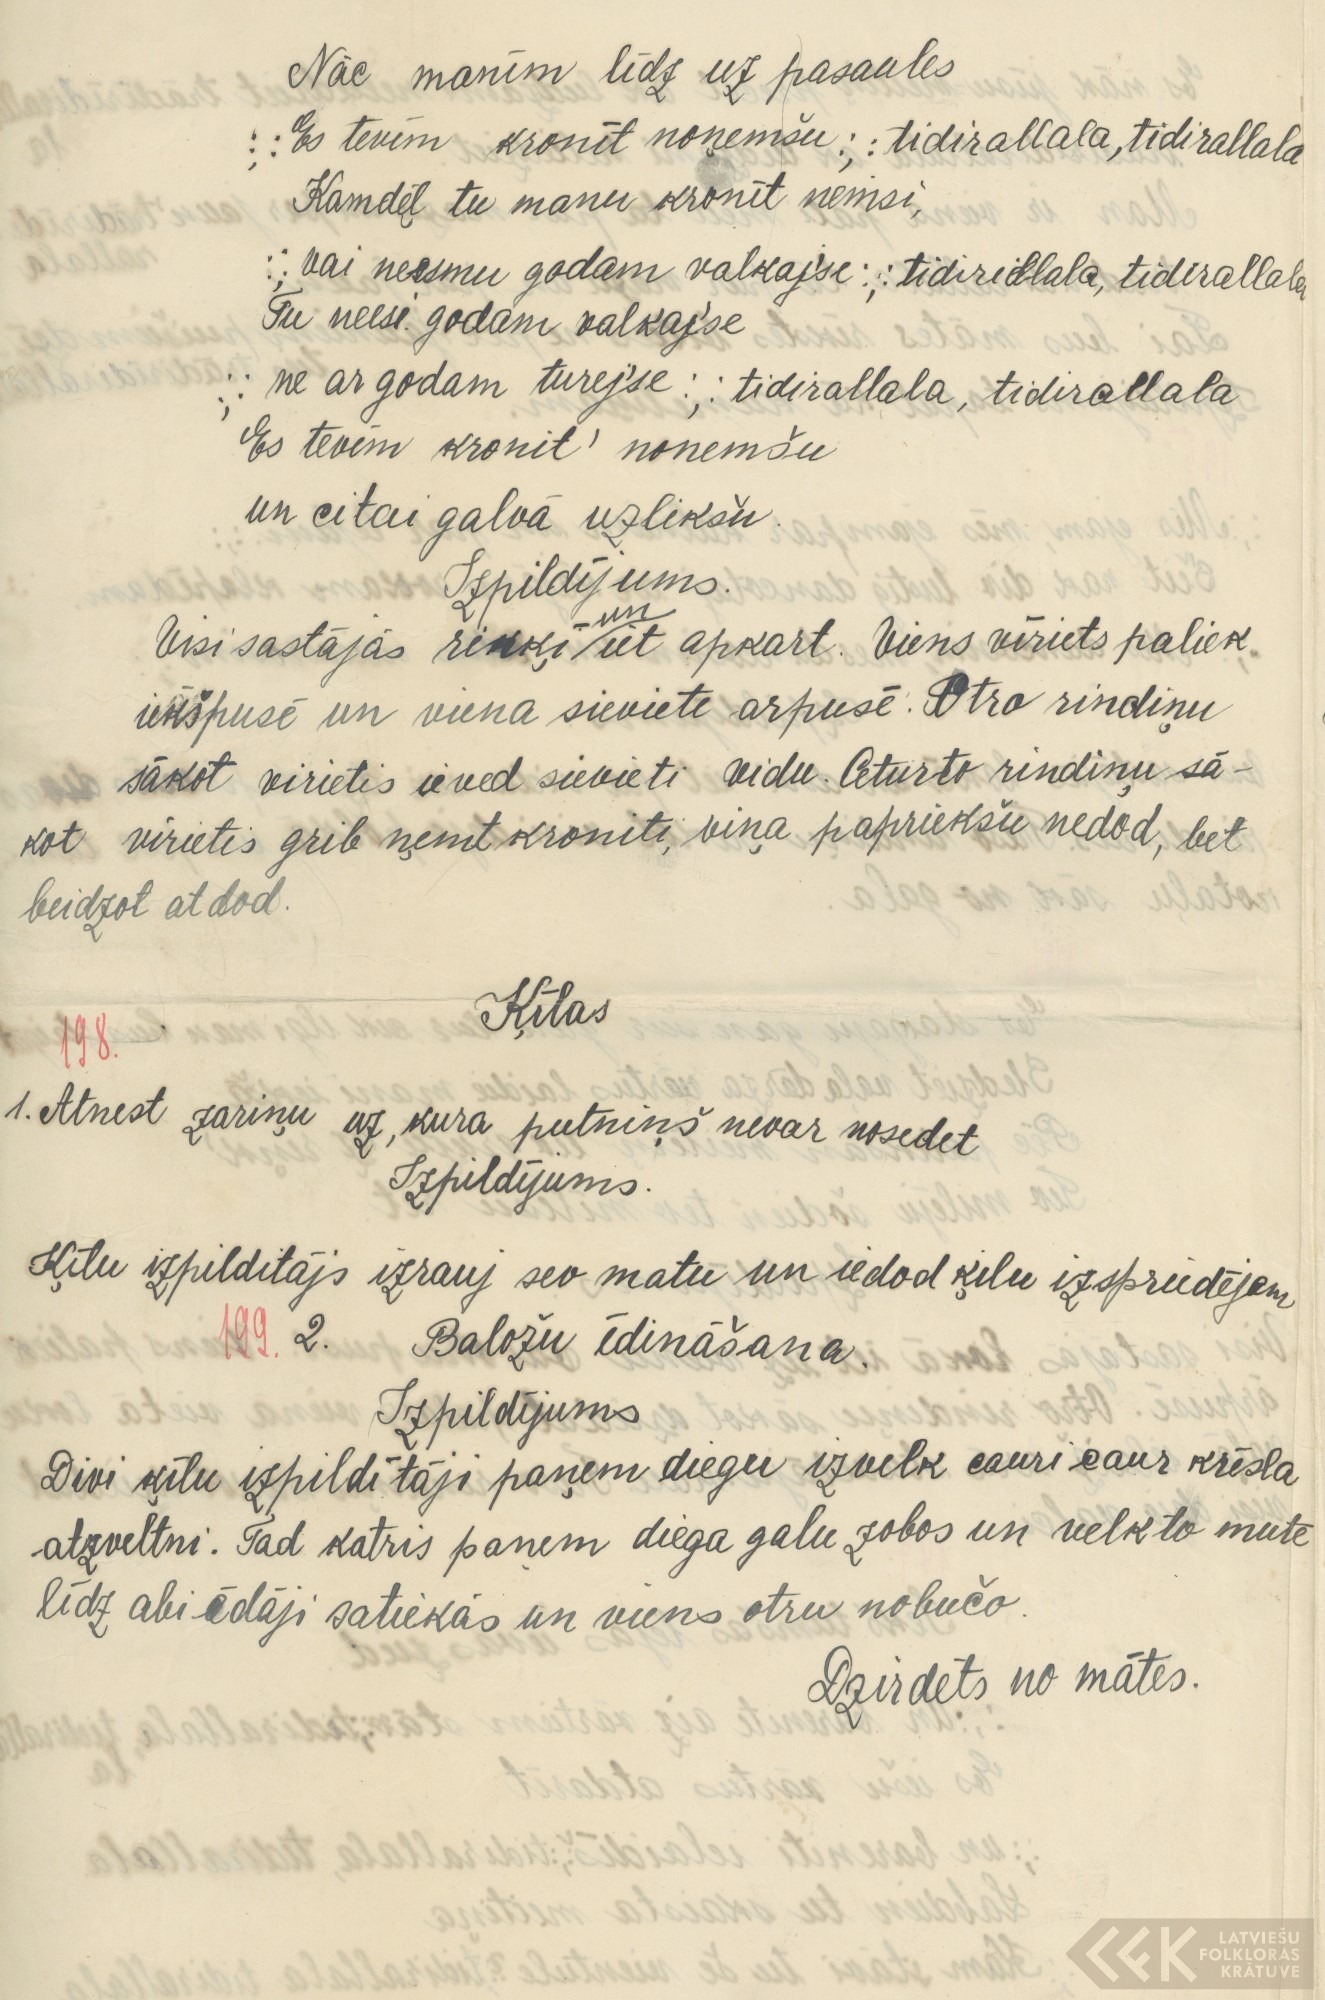 Nāc manīm līdz uz pasaules
:,: Es tevīm kronīt noņemšu :,: tidirallala, tidirallala
Kamdēļ tu manu kronīt ņemsi,
:,: vai neesmu godam valkaj'se :,: tidirillala, tidirallala
Tu neesi godam valkaj'se
:,: ne ar godam turej'se :,: tidirallala, tidirallala
Es tevīm kronit' noņemšu
un citai galvā uzlikšu.
Izpildījums.
Visi sastājās riņķī un iet apkārt. Viens vīriets paliek
iekšpusē un viena sieviete ārpusē. Otro rindiņu
sākot virietis ieved sievieti vidu. Ceturto rindiņu sā-
kot vīrietis grib ņemt kroniti, viņa papriekšu nedod, bet
beidzot atdod.
Ķīlas
198.
1. Atnest zariņu uz, kura putniņš nevar nosedet
Izpildījums.
Ķīlu izpilditājs izrauj sev matu un iedod ķīlu izspriedējam
199. 2. Baložu ēdināšana.
Izpildījums
Divi ķīlu izpildītāji paņem diegu izvelk cauri caur krēsla
atzveltni. Tad katris paņem diega galu zobos un velk to mutē
līdz abi ēdāji satiekās un viens otru nobučo.
Dzirdēts no mātes.
LATVIEŠU
FOLKLORAS
KRĀTUVE